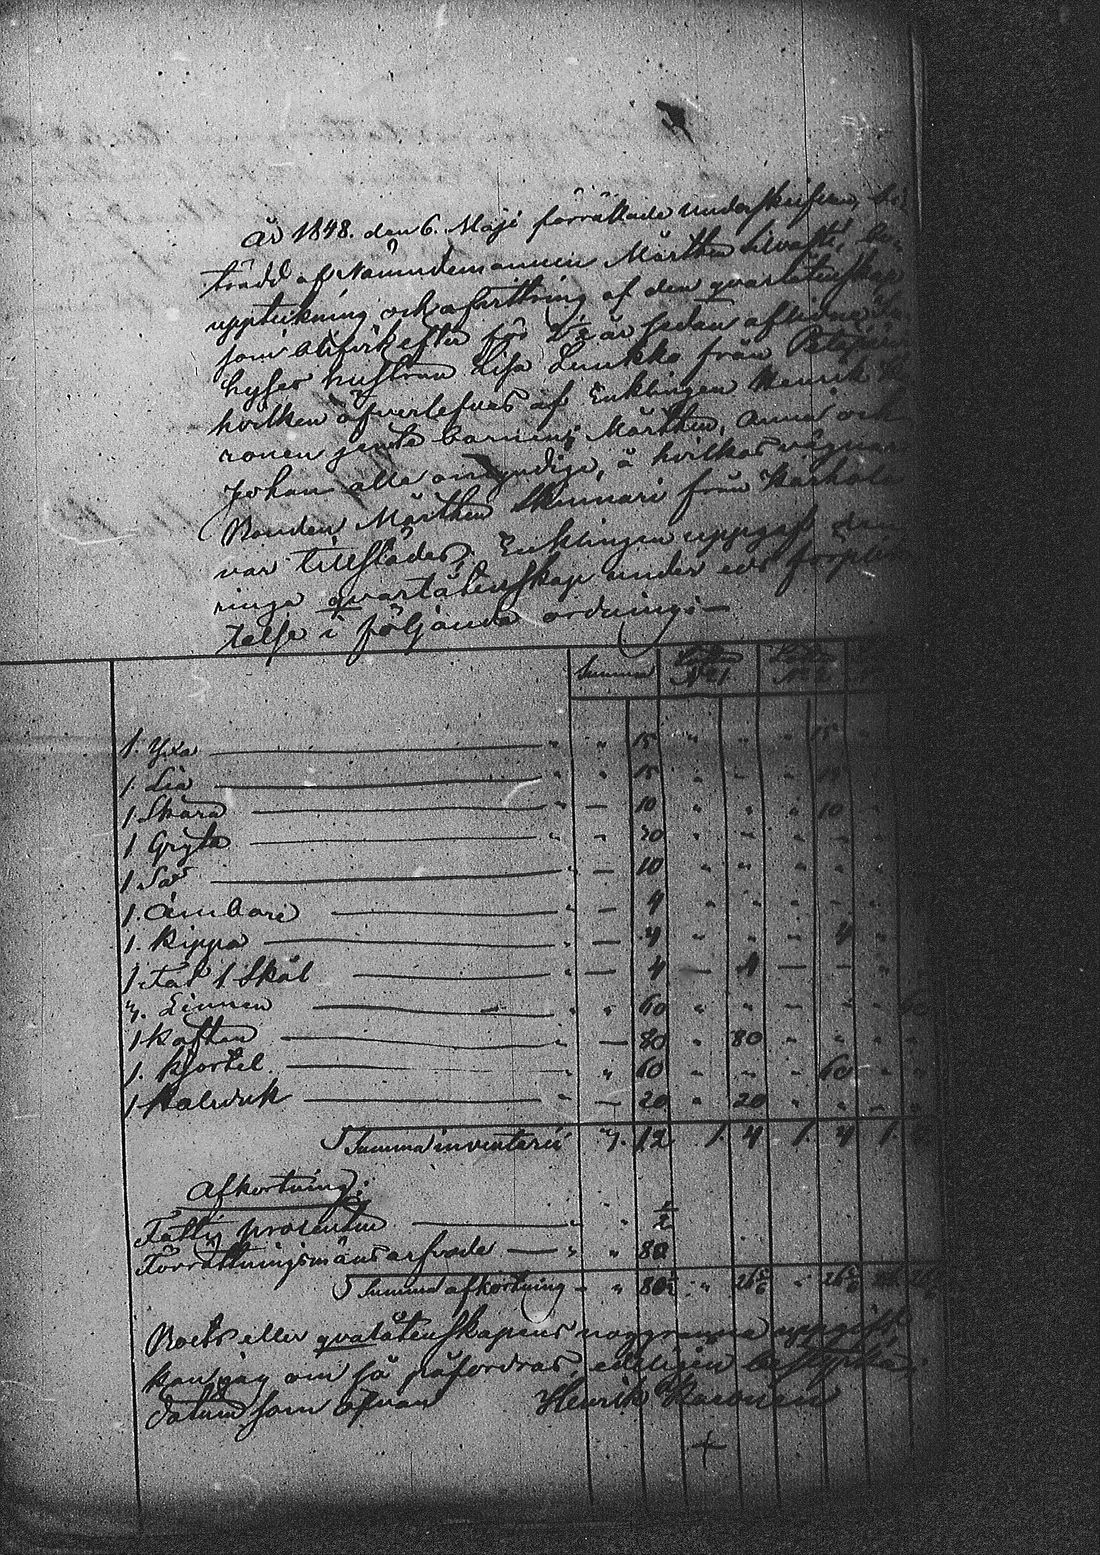 År 1848. den 6. Maji förrättade Underskrifven, bi-
trädd af Nämndemannen Mårthen
uppteckning och afvittring af den qvarlåtenskap
som blifvit efter för 2 1/2 år sedan aflidne In-
hyses hustrun Lisa Luukko från
hvilken öfverlefves af Enklingen Henrik
ronen jemte barnen Mårthen, Anna och
Johan alla omyndige, å hvilkas vägnar
Bonden Mårthen Skinnari från
var tillstädes; Enklingen uppgaf den
ringa qvarlåtenskap under eds förplik-
telse i följande ordning:—
Summa Lotten № 1 Lotten № 2
1. Yxa — " " 15 " " " 15
1. Lia — " " 15 " " " 15
1 Skära — " — 10 " " " 10
1 Gryta — " " 20 " " " "
1 Så — " — 10 " " " "
1. Ämbare — " — 4 " " " "
1. Kippa — " — 4 " " " 4 "
1 Fat 1 Skål — " — 4 — 4 — —
3. Linnen — " " 60 " " " " " 60
1 Kofta — " — 80 " 80 " " " "
1. Kjortel — " " 60 " " " 60 " "
1 — " — 20 " 20 " " " "
Summa inventarii 3. 12 1. 4 1. 4 1.
Afkortning:
Fattig procenten — " " 1/2
Förrättningsmäns arfvode — " " 80
Summa afkortning — " 80 1/2 " 26 5/6 " 26 5/6
Boets eller qvarlåtenskapens noggranna uppgift
kan jag om så påfordras, edeligen bestyrka,
datum som ofvan Henrik
+